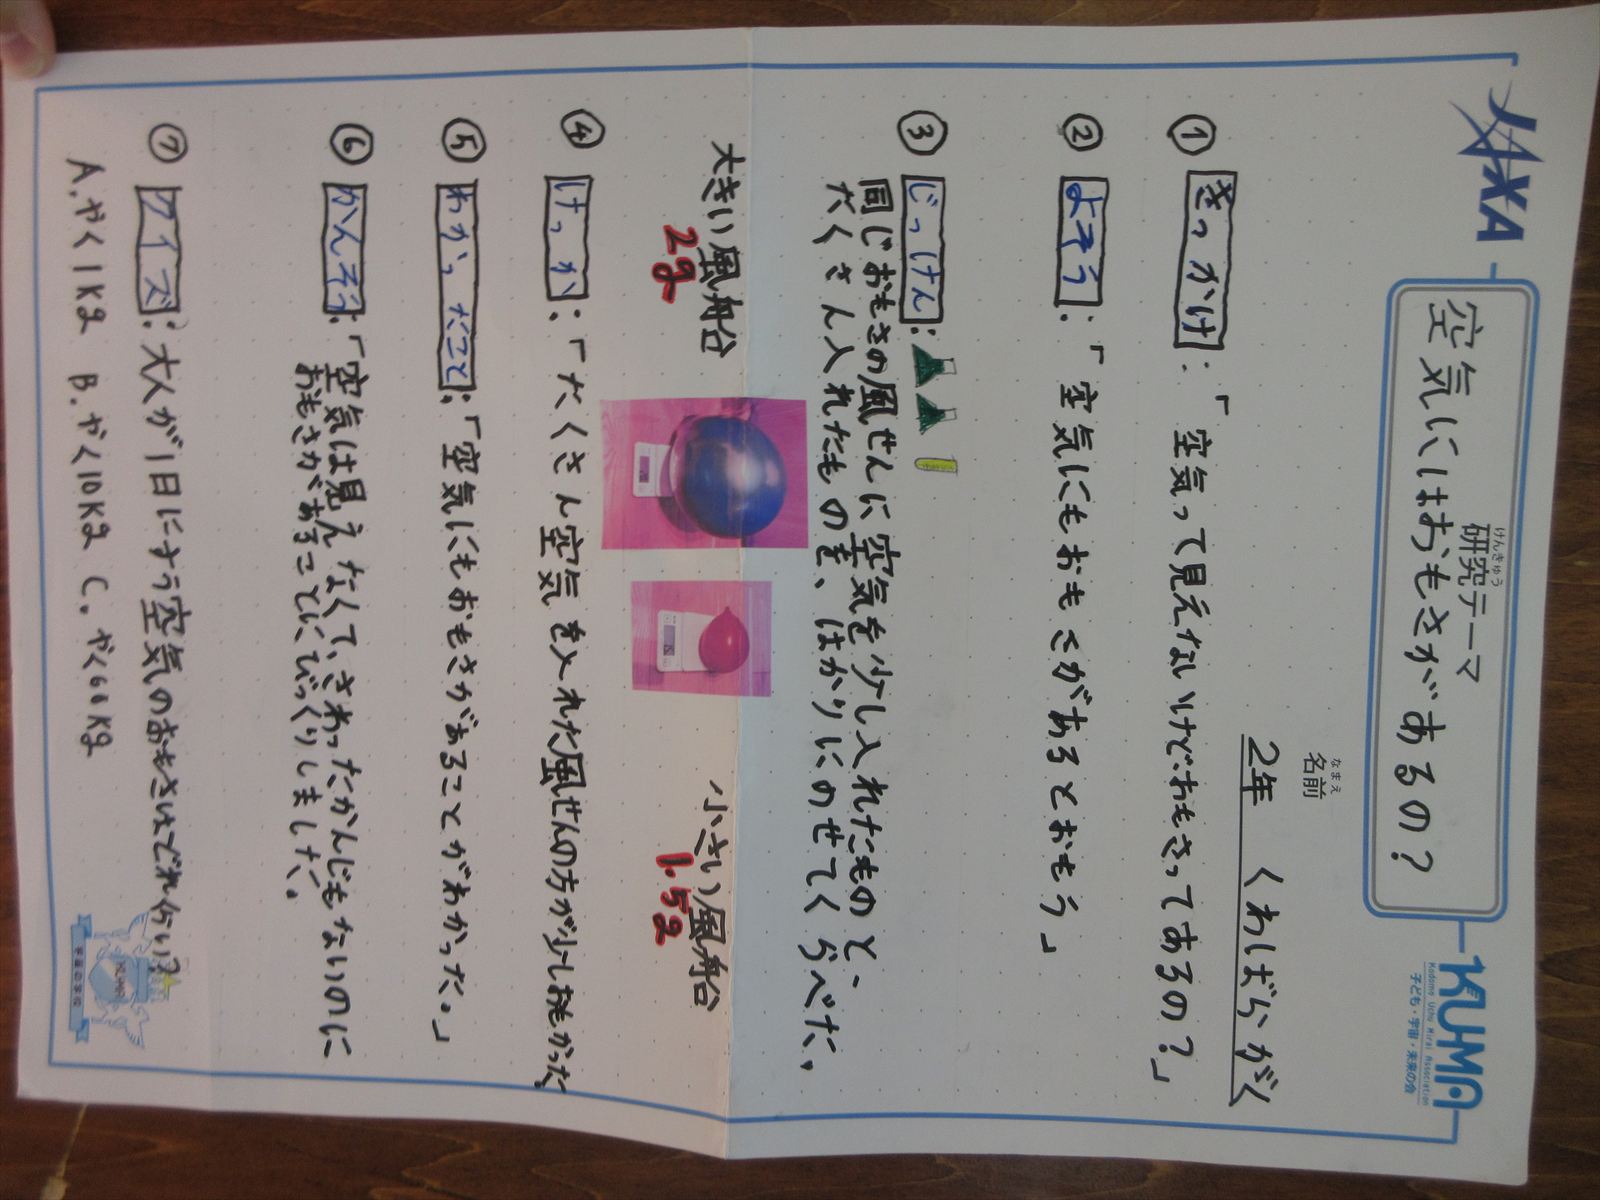 JAXA
研究テーマ
けんきゅう
空気にはおもさがあるの?
KU-MA
Kodomo Uchu Mirai Association
子ども・宇宙・未来の会
名前
なまえ
2年 くわばらがく
① きっかけ:「空気って見えないけどおもさってあるの?」
② よそう:「空気にもおもさがあるとおもう」
③ じっけん:
同じおもさの風せんに空気を少し入れたものと、
たくさん入れたものを、はかりにのせてくらべた。
大きい風船台
2g
小さい風船台
1.5g
④ けっか:「たくさん空気を入れた風せんの方が少しおもかった
⑤ わかったこと:「空気にもおもさがあることがわかった。」
⑥ かんそう:「空気は見えなくて、さわったかんじもないのに
おもさがあることにびっくりしました。
⑦ クイズ:大人が1日にすう空気のおもさはどれ位い?
A.やく1Kg B.やく10Kg C.やく60Kg
KU-MA
宇宙の学校